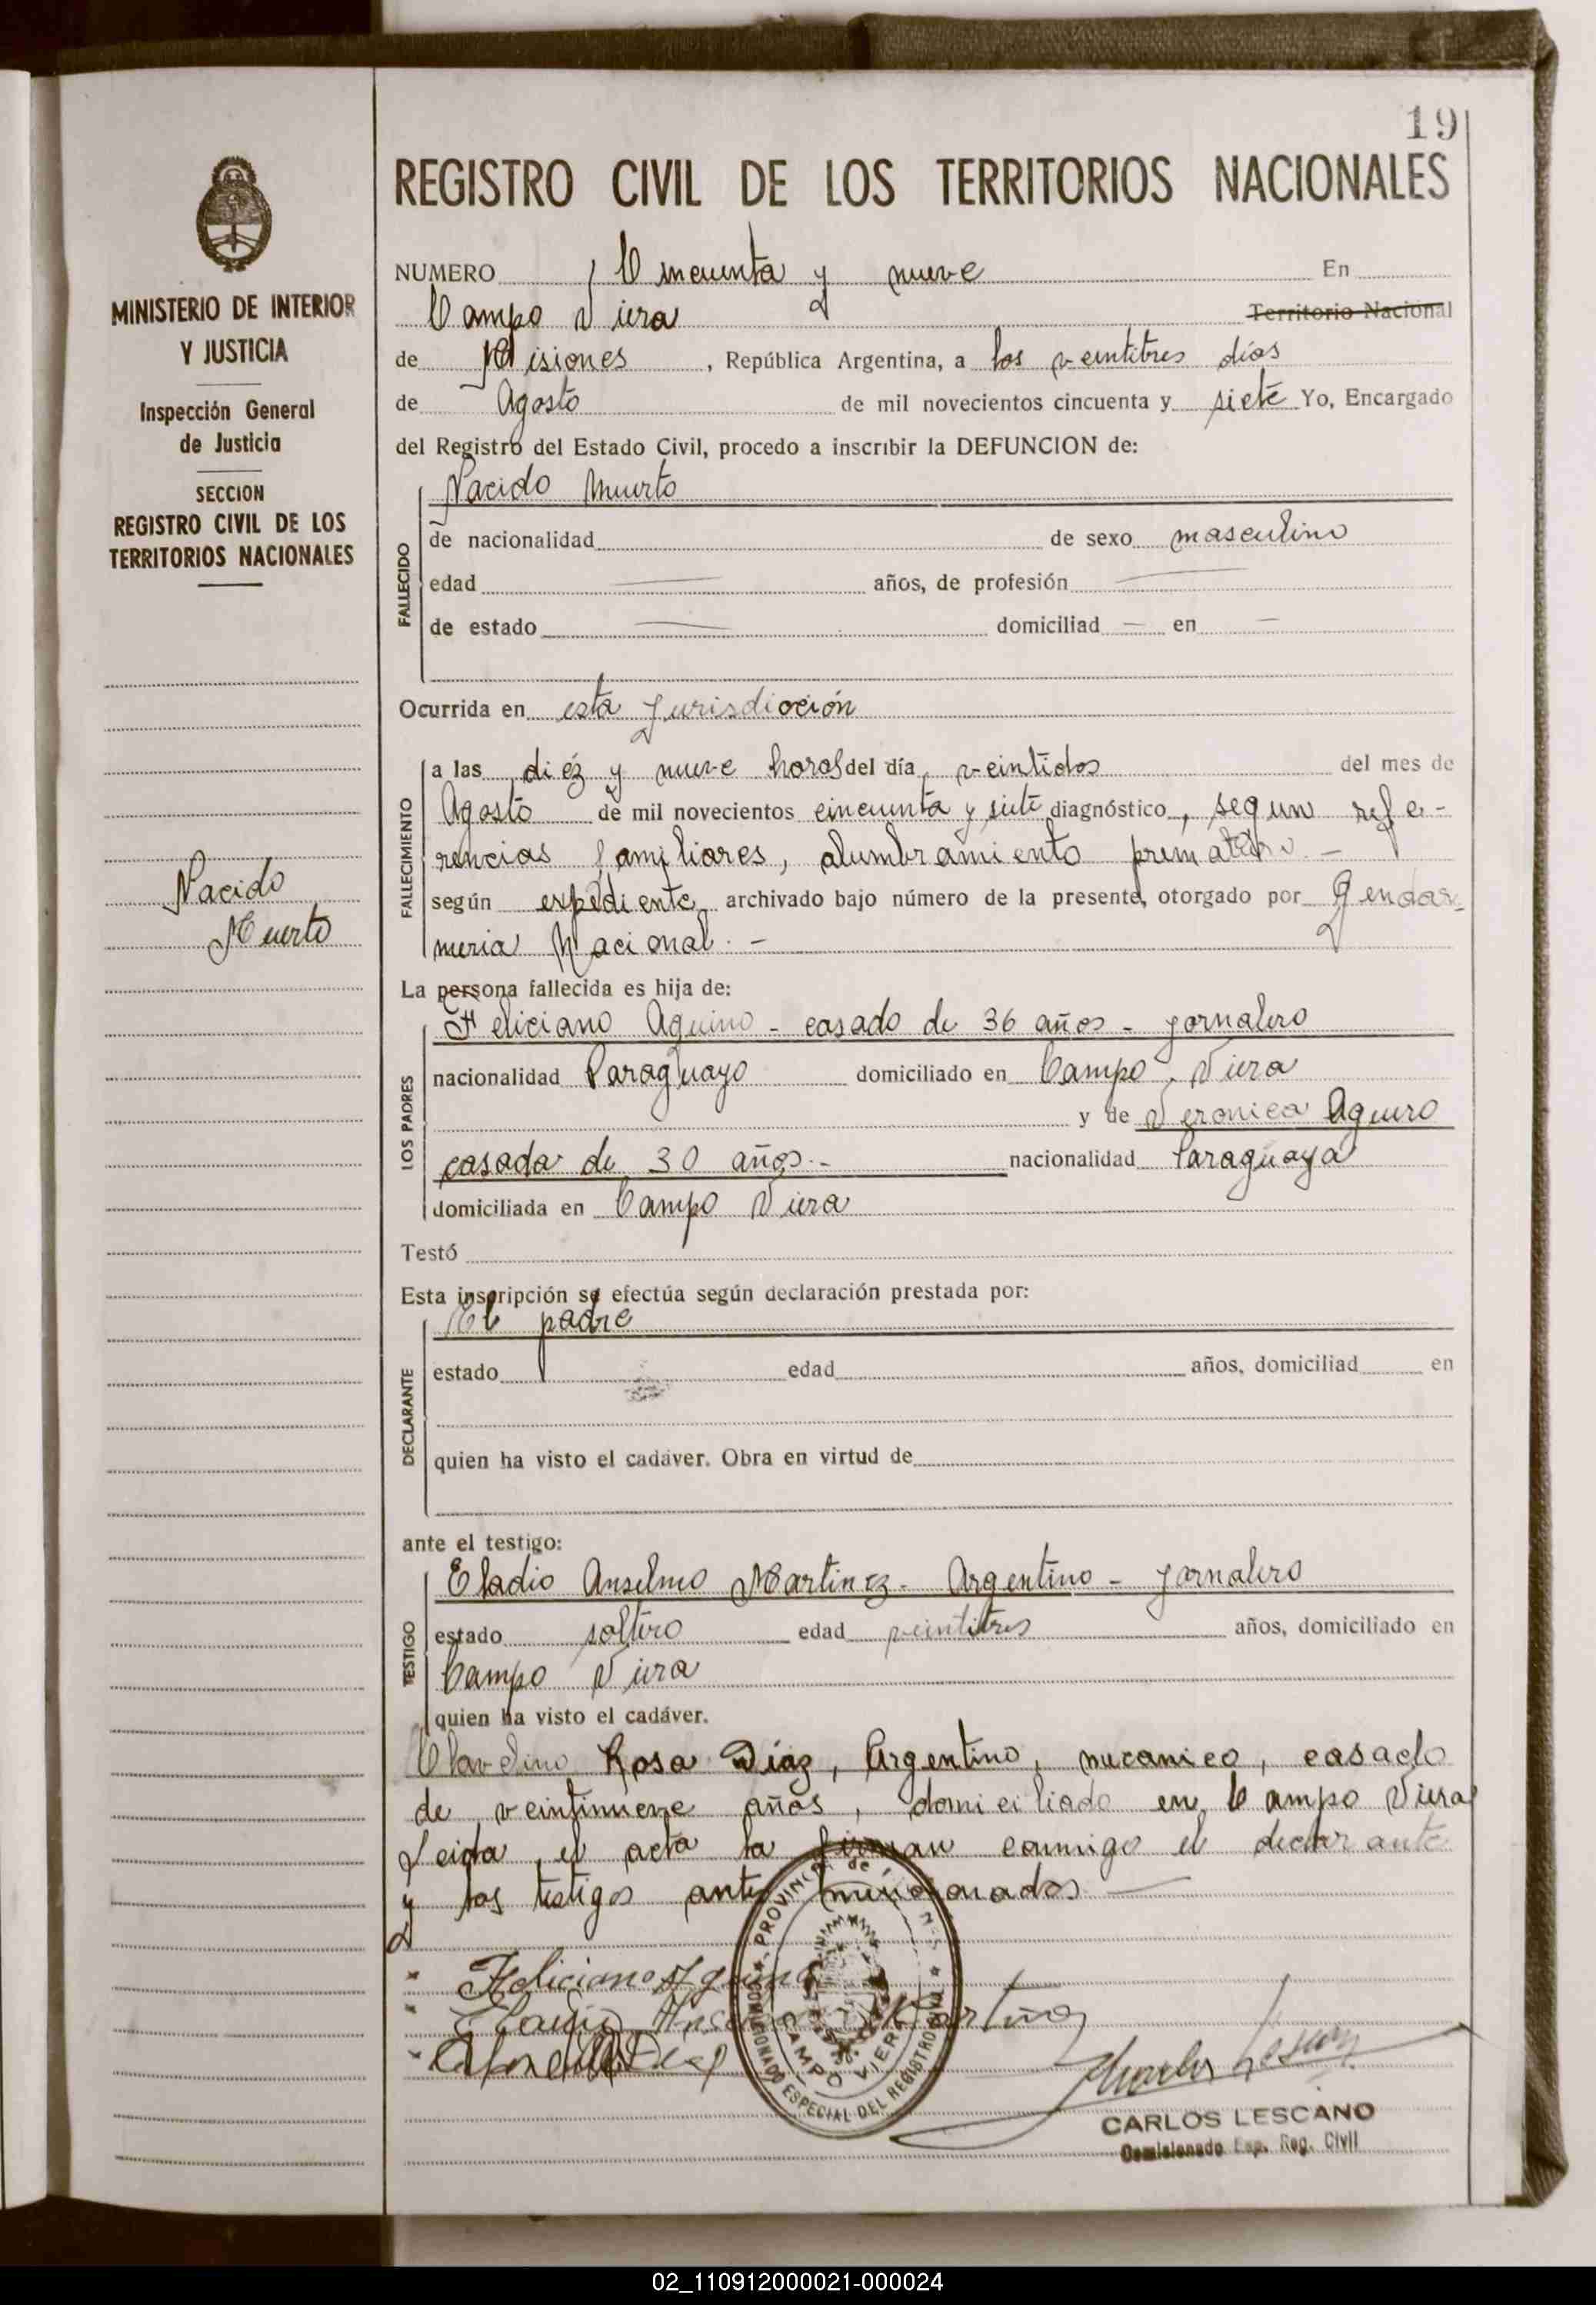 19
REGISTRO CIVIL DE LOS TERRITORIOS NACIONALES
MINISTERIO DE INTERIOR
Y JUSTICIA
Inspección General
de Justicia
SECCION
REGISTRO CIVIL DE LOS
TERRITORIOS NACIONALES
Nacido
Muerto
NUMERO Cincuenta y nueve En
Campo Viera Territorio Nacional
de Misiones, República Argentina, a los veintitres días
de Agosto de mil novecientos cincuenta y siete Yo, Encargado
del Registro del Estado Civil, procedo a inscribir la DEFUNCION de:
Nacido Muerto
FALLECIDO
de nacionalidad de sexo masculino
edad años, de profesión
de estado domiciliad — en —
Ocurrida en esta Jurisdicción
FALLECIMIENTO
a las diéz y nueve horas del día veintidos del mes de
Agosto de mil novecientos cincuenta y siete diagnóstico, segun refe-
rencias familiares, alumbramiento prematuro. -
según expediente archivado bajo número de la presente, otorgado por Gendar-
meria Nacional. -
La persona fallecida es hija de:
LOS PADRES
Feliciano Aquino - casado de 36 años - jornalero
nacionalidad Paraguayo domiciliado en Campo Viera
y de Veronica Aguero
casada de 30 años. - nacionalidad Paraguaya
domiciliada en Campo Viera
Testó
Esta inscripción se efectúa según declaración prestada por:
DECLARANTE
El padre
estado edad años, domiciliad en
quien ha visto el cadáver. Obra en virtud de
ante el testigo:
TESTIGO
Eladio Anselmo Martinez - Argentino - jornalero
estado soltero edad veintitres años, domiciliado en
Campo Viera
quien ha visto el cadáver.
Rosa Diaz, Argentino, mecanico, casado
de veintinueve años, domiciliado en Campo Viera
Leida el acta la firman conmigo el declarante
y los testigos antes mencionados —
Feliciano Aquino
Eladio Anselmo Martinez
PROVINCIA de
COMISIONADO ESPECIAL DEL REGISTRO CIVIL
CAMPO VIERA
CARLOS LESCANO
Comisionado Esp. Reg. Civil
02_110912000021-000024